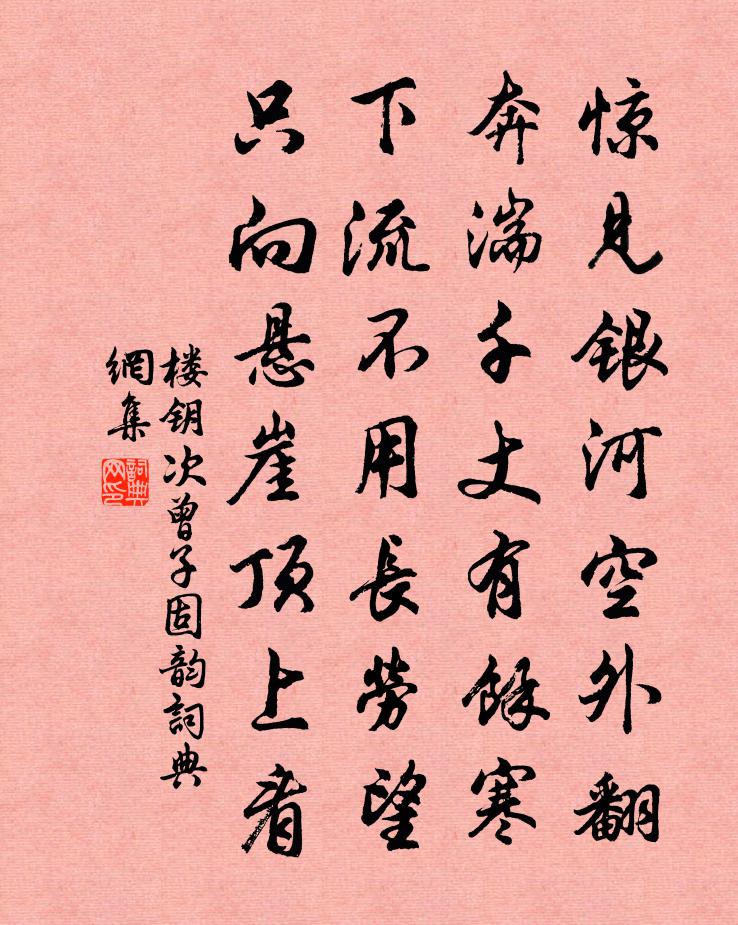 惊见银河空外翻
奔湍千丈有馀寒
下流不用長勞望
只向悬崖顶上看
楼钥次曾子固韵詞典
網集
詞典
网印